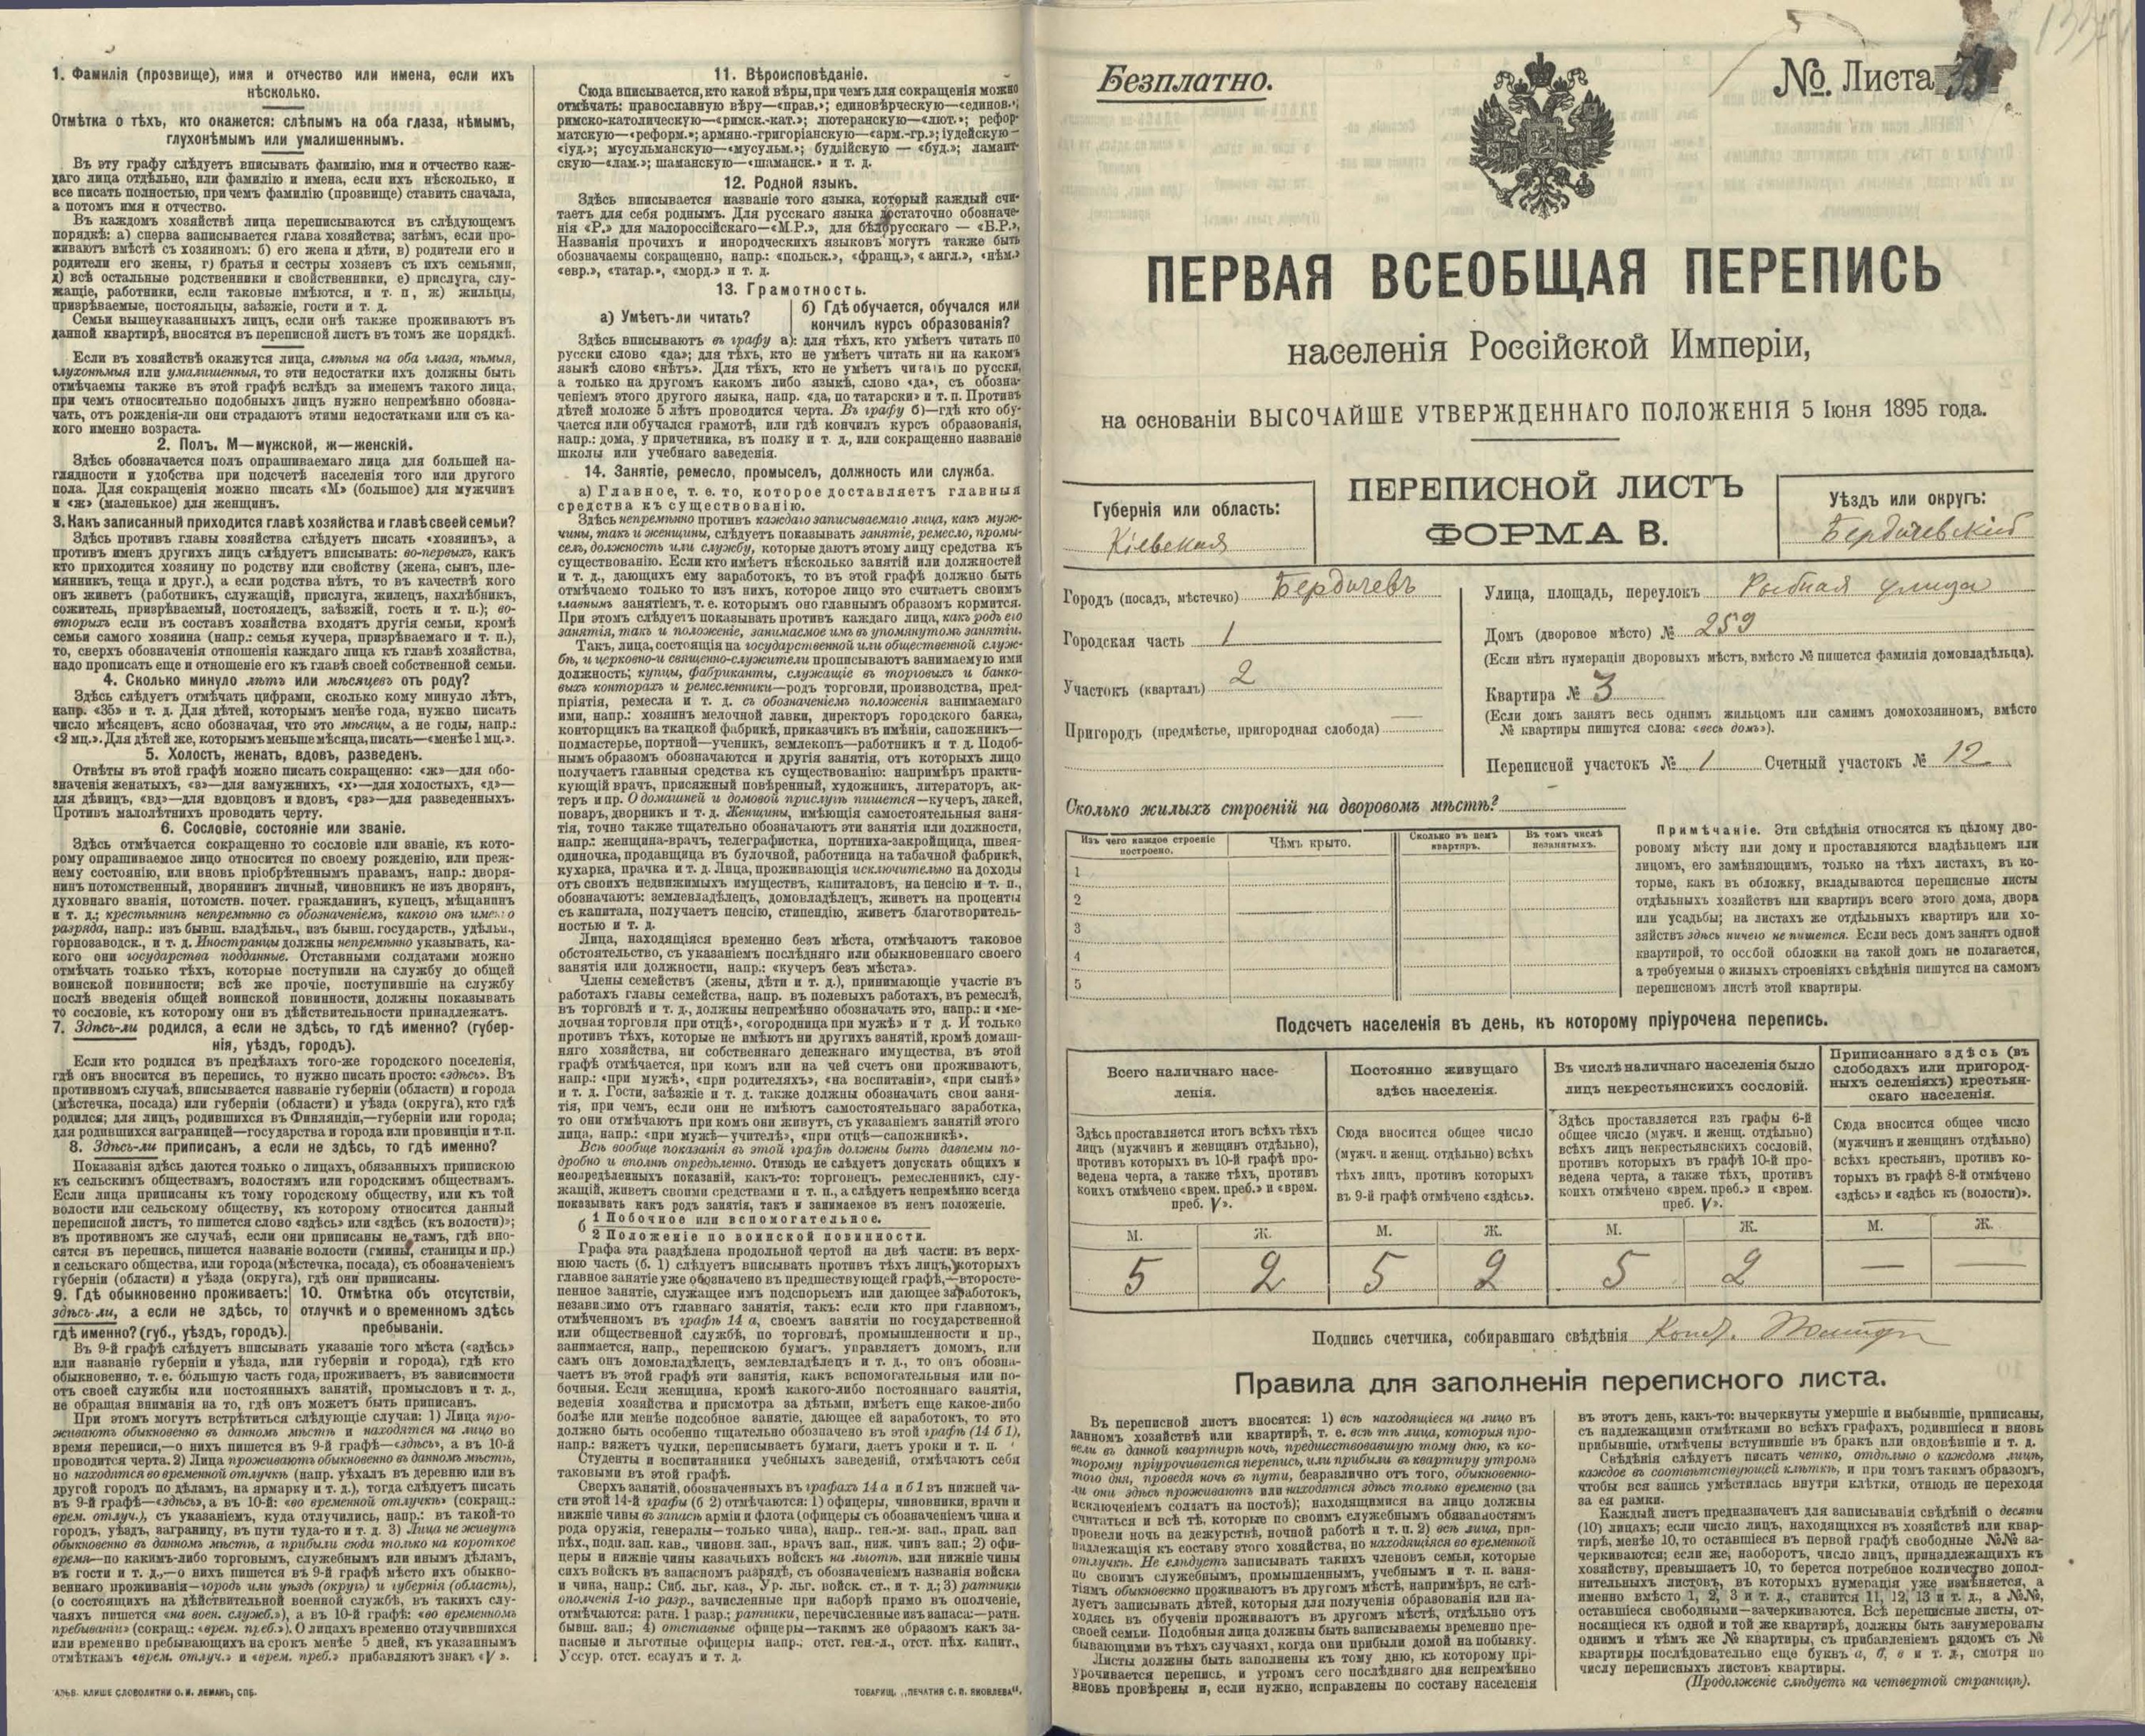 1. Фамилія (прозвище), имя и отчество или имена, если ихъ
нѣсколько.
Отмѣтка о тѣхъ, кто окажется: слѣпымъ на оба глаза, нѣмымъ,
глухонѣмымъ или умалишеннымъ.
Въ эту графу слѣдуетъ вписывать фамилію, имя и отчество каж-
даго лица отдѣльно, или фамилію и имена, если ихъ нѣсколько, и
все писать полностью, при чемъ фамилію (прозвище) ставить сначала,
а потомъ имя и отчество.
Въ каждомъ хозяйствѣ лица переписываются въ слѣдующемъ
порядкѣ: а) сперва записывается глава хозяйства; затѣмъ, если про-
живаютъ вмѣстѣ съ хозяиномъ: б) его жена и дѣти, в) родители его и
родители его жены, г) братья и сестры хозяевъ съ ихъ семьями,
д) всѣ остальные родственники и свойственники, е) прислуга, слу-
жащіе, работники, если таковые имѣются, и т. п, ж) жильцы,
призрѣваемые, постояльцы, заѣзжіе, гости и т. д.
Семьи вышеуказанныхъ лицъ, если онѣ также проживаютъ въ
данной квартирѣ, вносятся въ переписной листъ въ томъ же порядкѣ.
Если въ хозяйствѣ окажутся лица, слѣпыя на оба глаза, нѣмыя,
глухонѣмыя или умалишенныя, то эти недостатки ихъ должны быть
отмѣчаемы также въ этой графѣ вслѣдъ за именемъ такого лица,
при чемъ относительно подобныхъ лицъ нужно непремѣнно обозна-
чать, отъ рожденія-ли они страдаютъ этими недостатками или съ ка-
кого именно возраста.
2. Полъ. М—мужской, ж—женскій.
Здѣсь обозначается полъ опрашиваемаго лица для большей на-
глядности и удобства при подсчетѣ населенія того или другого
пола. Для сокращенія можно писать «М» (большое) для мужчинъ
и «ж» (маленькое) для женщинъ.
3. Какъ записанный приходится главѣ хозяйства и главѣ своей семьи?
Здѣсь противъ главы хозяйства слѣдуетъ писать «хозяинъ», а
противъ именъ другихъ лицъ слѣдуетъ вписывать: во-первыхъ, какъ
кто приходится хозяину по родству или свойству (жена, сынъ, пле-
мянникъ, теща и друг.), а если родства нѣтъ, то въ качествѣ кого
онъ живетъ (работникъ, служащій, прислуга, жилецъ, нахлѣбникъ,
сожитель, призрѣваемый, постоялецъ, заѣзжій, гость и т. п.); во-
вторыхъ если въ составъ хозяйства входятъ другія семьи, кромѣ
семьи самого хозяина (напр.: семья кучера, призрѣваемаго и т. п.),
то, сверхъ обозначенія отношенія каждаго лица къ главѣ хозяйства,
надо прописать еще и отношеніе его къ главѣ своей собственной семьи.
4. Сколько минуло лѣтъ или мѣсяцевъ отъ роду?
Здѣсь слѣдуетъ отмѣчать цифрами, сколько кому минуло лѣтъ,
напр. «35» и т. д. Для дѣтей, которымъ менѣе года, нужно писать
число мѣсяцевъ, ясно обозначая, что это мѣсяцы, а не годы, напр.:
«2 мц.». Для дѣтей же, которымъ меньше мѣсяца, писать—«менѣе 1 мц.».
5. Холостъ, женатъ, вдовъ, разведенъ.
Отвѣты въ этой графѣ можно писать сокращенно: «ж»—для обо-
значенія женатыхъ, «з»—для замужнихъ, «х»—для холостыхъ, «д»—
для дѣвицъ, «вд»—для вдовцовъ и вдовъ, «рз»—для разведенныхъ.
Противъ малолѣтнихъ проводить черту.
6. Сословіе, состояніе или званіе.
Здѣсь отмѣчается сокращенно то сословіе или званіе, къ кото-
рому опрашиваемое лицо относится по своему рожденію, или преж-
нему состоянію, или вновь пріобрѣтеннымъ правамъ, напр.: дворя-
нинъ потомственный, дворянинъ личный, чиновникъ не изъ дворянъ,
духовнаго званія, потомств. почет. гражданинъ, купецъ, мѣщанинъ
и т. д.; крестьянинъ непремѣнно съ обозначеніемъ, какого онъ имено
разряда, напр.: изъ бывш. владѣльч., изъ бывш. государств., удѣльн.,
горнозаводск., и т. д. Иностранцы должны непремѣнно указывать, ка-
кого они государства подданные. Отставными солдатами можно
отмѣчать только тѣхъ, которые поступили на службу до общей
воинской повинности; всѣ же прочіе, поступившіе на службу
послѣ введенія общей воинской повинности, должны показывать
то сословіе, къ которому они въ дѣйствительности принадлежатъ.
7. Здѣсь-ли родился, а если не здѣсь, то гдѣ именно? (губер-
нія, уѣздъ, городъ).
Если кто родился въ предѣлахъ того-же городского поселенія,
гдѣ онъ вносится въ перепись, то нужно писать просто: «здѣсь». Въ
противномъ случаѣ, вписывается названіе губерніи (области) и города
(мѣстечка, посада) или губерніи (области) и уѣзда (округа), кто гдѣ
родился; для лицъ, родившихся въ Финляндіи,—губерніи или города;
для родившихся заграницей—государства и города или провинціи и т.п.
8. Здѣсь-ли приписанъ, а если не здѣсь, то гдѣ именно?
Показанія здѣсь даются только о лицахъ, обязанныхъ припискою
къ сельскимъ обществамъ, волостямъ или городскимъ обществамъ.
Если лица приписаны къ тому городскому обществу, или къ той
волости или сельскому обществу, къ которому относится данный
переписной листъ, то пишется слово «здѣсь» или «здѣсь (къ волости)»;
въ противномъ же случаѣ, если они приписаны не тамъ, гдѣ вно-
сятся въ перепись, пишется названіе волости (гмины, станицы и пр.)
и сельскаго общества, или города (мѣстечка, посада), съ обозначеніемъ
губерніи (области) и уѣзда (округа), гдѣ они приписаны.
9. Гдѣ обыкновенно проживаетъ:
здѣсь-ли, а если не здѣсь, то
гдѣ именно? (губ., уѣздъ, городъ).
10. Отмѣтка объ отсутствіи,
отлучкѣ и о временномъ здѣсь
пребываніи.
Въ 9-й графѣ слѣдуетъ вписывать указаніе того мѣста («здѣсь»
или названіе губерніи и уѣзда, или губерніи и города), гдѣ кто
обыкновенно, т. е. бо́льшую часть года, проживаетъ, въ зависимости
отъ своей службы или постоянныхъ занятій, промысловъ и т. д.,
не обращая вниманія на то, гдѣ онъ можетъ быть приписанъ.
При этомъ могутъ встрѣтиться слѣдующіе случаи: 1) Лица про-
живаютъ обыкновенно въ данномъ мѣстѣ и находятся на лицо во
время переписи,—о нихъ пишется въ 9-й графѣ—«здѣсь», а въ 10-й
проводится черта. 2) Лица проживаютъ обыкновенно въ данномъ мѣстѣ,
но находятся во временной отлучкѣ (напр. уѣхалъ въ деревню или въ
другой городъ по дѣламъ, на ярмарку и т. д.), тогда слѣдуетъ писать
въ 9-й графѣ—«здѣсь», а въ 10-й: «во временной отлучкѣ» (сокращ.:
врем. отлуч.), съ указаніемъ, куда отлучились, напр.: въ такой-то
городъ, уѣздъ, заграницу, въ пути туда-то и т. д. 3) Лица не живутъ
обыкновенно въ данномъ мѣстѣ, а прибыли сюда только на короткое
время—по какимъ-либо торговымъ, служебнымъ или инымъ дѣламъ,
въ гости и т. д.,—о нихъ пишется въ 9-й графѣ мѣсто ихъ обыкно-
веннаго проживанія—городъ или уѣздъ (округъ) и губернія (область),
(о состоящихъ на дѣйствительной военной службѣ, въ такихъ слу-
чаяхъ пишется «на воен. служб.»), а въ 10-й графѣ: «во временномъ
пребываніи» (сокращ.: «врем. преб.»). О лицахъ временно отлучившихся
или временно пребывающихъ на срокъ менѣе 5 дней, къ указаннымъ
отмѣткамъ «врем. отлуч.» и «врем. преб.» прибавляютъ знакъ «V».
КЛИШЕ СЛОВОЛИТНИ О. И. ЛЕМАНЪ, СПБ.
11. Вѣроисповѣданіе.
Сюда вписывается, кто какой вѣры, при чемъ для сокращенія можно
отмѣчать: православную вѣру—«прав.»; единовѣрческую—«единов.»;
римско-католическую—«римск.-кат.»; лютеранскую—«лют.»; рефор-
матскую—«реформ.»; армяно.-григоріанскую—«арм.-гр.»; іудейскую—
«іуд.»; мусульманскую—«мусульм.»; буддійскую — «буд.»; ламаит-
скую—«лам.»; шаманскую—«шаманск.» и т. д.
12. Родной языкъ.
Здѣсь вписывается названіе того языка, который каждый счи-
таетъ для себя роднымъ. Для русскаго языка достаточно обозначе-
нія «Р.» для малороссійскаго—«М.Р.», для бѣлорусскаго — «Б.Р.»,
Названія прочихъ и инородческихъ языковъ могутъ также быть
обозначаемы сокращенно, напр.: «польск.», «франц.», «англ.», «нѣм.»
«евр.», «татар.», «морд.» и т. д.
13. Грамотность.
а) Умѣетъ-ли читать?
б) Гдѣ обучается, обучался или
кончилъ курсъ образованія?
Здѣсь вписываютъ въ графу а): для тѣхъ, кто умѣетъ читать по
русски слово «да»; для тѣхъ, кто не умѣетъ читать ни на какомъ
языкѣ слово «нѣтъ». Для тѣхъ, кто не умѣетъ читать по русски,
а только на другомъ какомъ либо языкѣ, слово «да», съ обозна-
ченіемъ этого другого языка, напр. «да, по татарски» и т. п. Противъ
дѣтей моложе 5 лѣтъ проводится черта. Въ графу б)—гдѣ кто обу-
чается или обучался грамотѣ, или гдѣ кончилъ курсъ образованія,
напр.: дома, у причетника, въ полку и т. д., или сокращенно названіе
школы или учебнаго заведенія.
14. Занятіе, ремесло, промыселъ, должность или служба.
а) Главное, т. е. то, которое доставляетъ главныя
средства къ существованію.
Здѣсь непремѣнно противъ каждаго записываемаго лица, какъ муж-
чины, такъ и женщины, слѣдуетъ показывать занятіе, ремесло, промы-
селъ, должность или службу, которые даютъ этому лицу средства къ
существованію. Если кто имѣетъ нѣсколько занятій или должностей
и т. д., дающихъ ему заработокъ, то въ этой графѣ должно быть
отмѣчаемо только то изъ нихъ, которое лицо это считаетъ своимъ
главнымъ занятіемъ, т. е. которымъ оно главнымъ образомъ кормится.
При этомъ слѣдуетъ показывать противъ каждаго лица, какъ родъ его
занятія, такъ и положеніе, занимаемое имъ въ упомянутомъ занятіи.
Такъ, лица, состоящія на государственной или общественной служ-
бѣ, и церковно-и священно-служители прописываютъ занимаемую ими
должность; купцы, фабриканты, служащіе въ торговыхъ и банко-
выхъ конторахъ и ремесленники—родъ торговли, производства, пред-
пріятія, ремесла и т. д. съ обозначеніемъ положенія занимаемаго
ими, напр.: хозяинъ мелочной лавки, директоръ городского банка,
конторщикъ на ткацкой фабрикѣ, приказчикъ въ имѣніи, сапожникъ—
подмастерье, портной—ученикъ, землекопъ—работникъ и т. д. Подоб-
нымъ образомъ обозначаются и другія занятія, отъ которыхъ лицо
получаетъ главныя средства къ существованію: напримѣръ практи-
кующій врачъ, присяжный повѣренный, художникъ, литераторъ, ак-
теръ и пр. О домашней и домовой прислугѣ пишется—кучеръ, лакей,
поваръ, дворникъ и т. д. Женщины, имѣющія самостоятельныя заня-
тія, точно также тщательно обозначаютъ эти занятія или должности,
напр.: женщина-врачъ, телеграфистка, портниха-закройщица, швея-
одиночка, продавщица въ булочной, работница на табачной фабрикѣ,
кухарка, прачка и т. д. Лица, проживающія исключительно на доходы
отъ своихъ недвижимыхъ имуществъ, капиталовъ, на пенсію и т. п.,
обозначаютъ: землевладѣлецъ, домовладѣлецъ, живетъ на проценты
съ капитала, получаетъ пенсію, стипендію, живетъ благотворитель-
ностью и т. д.
Лица, находящіяся временно безъ мѣста, отмѣчаютъ таковое
обстоятельство, съ указаніемъ послѣдняго или обыкновеннаго своего
занятія или должности, напр.: «кучеръ безъ мѣста».
Члены семействъ (жены, дѣти и т. д.), принимающіе участіе въ
работахъ главы семейства, напр. въ полевыхъ работахъ, въ ремеслѣ,
въ торговлѣ и т. д., должны непремѣнно обозначать это, напр.: и «ме-
лочная торговля при отцѣ», «огородница при мужѣ» и т д. И только
противъ тѣхъ, которые не имѣютъ ни другихъ занятій, кромѣ домаш-
няго хозяйства, ни собственнаго денежнаго имущества, въ этой
графѣ отмѣчается, при комъ или на чей счетъ они проживаютъ,
напр.: «при мужѣ», «при родителяхъ», «на воспитаніи», «при сынѣ»
и т. д. Гости, заѣзжіе и т. д. также должны обозначать свои заня-
тія, при чемъ, если они не имѣютъ самостоятельнаго заработка,
то они отмѣчаютъ при комъ они живутъ, съ указаніемъ занятій этого
лица, напр.: «при мужѣ—учителѣ», «при отцѣ—сапожникѣ».
Всѣ вообще показанія въ этой графѣ должны быть даваемы по-
дробно и вполнѣ опредѣленно. Отнюдь не слѣдуетъ допускать общихъ и
неопредѣленныхъ показаній, какъ-то: торговецъ, ремесленникъ, слу-
жащій, живетъ своими средствами и т. п., а слѣдуетъ непремѣнно всегда
показывать какъ родъ занятія, такъ и занимаемое въ немъ положеніе.
б 1 Побочное или вспомогательное.
2 Положеніе по воинской повинности.
Графа эта раздѣлена продольной чертой на двѣ части: въ верх-
нюю часть (б. 1) слѣдуетъ вписывать противъ тѣхъ лицъ, которыхъ
главное занятіе уже обозначено въ предшествующей графѣ,—второсте-
пенное занятіе, служащее имъ подспорьемъ или дающее заработокъ,
независимо отъ главнаго занятія, такъ: если кто при главномъ,
отмѣченномъ въ графѣ 14 а, своемъ занятіи по государственной
или общественной службѣ, по торговлѣ, промышленности и пр.,
занимается, напр., перепискою бумагъ, управляетъ домомъ, или
самъ онъ домовладѣлецъ, землевладѣлецъ и т. д., то онъ обозна-
чаетъ въ этой графѣ эти занятія, какъ вспомогательныя или по-
бочныя. Если женщина, кромѣ какого-либо постояннаго занятія,
веденія хозяйства и присмотра за дѣтьми, имѣетъ еще какое-либо
болѣе или менѣе подсобное занятіе, дающее ей заработокъ, то это
должно быть особенно тщательно обозначено въ этой графѣ (14 б 1),
напр.: вяжетъ чулки, переписываетъ бумаги, даетъ уроки и т. п.
Студенты и воспитанники учебныхъ заведеній, отмѣчаютъ себя
таковыми въ этой графѣ.
Сверхъ занятій, обозначенныхъ въ графахъ 14 а и б 1 въ нижней ча-
сти этой 14-й графы (б 2) отмѣчаются: 1) офицеры, чиновники, врачи и
нижніе чины въ запасѣ арміи и флота (офицеры съ обозначеніемъ чина и
рода оружія, генералы—только чина), напр.. ген.-м. зап., прап. зап
пѣх., подп. зап. кав., чиновн. зап., врачъ зап., ниж. чинъ зап.; 2) офи-
церы и нижніе чины казачьихъ войскъ на льготѣ, или нижніе чины
сихъ войскъ въ запасномъ разрядѣ, съ обозначеніемъ названія войска
и чина, напр.: Сиб. льг. каз., Ур. льг. войск. ст., и т. д.; 3) ратники
ополченія 1-го разр., зачисленные при наборѣ прямо въ ополченіе,
отмѣчаются: ратн. 1 разр.; ратники, перечисленные изъ запаса:—ратн.
бывш. зап.; 4) отставные офицеры—такимъ же образомъ какъ за-
пасные и льготные офицеры напр.; отст. ген.-л., отст. пѣх. капит.,
Уссур. отст. есаулъ и т. д.
ТОВАРИЩ. „ПЕЧАТНЯ С. П. ЯКОВЛЕВА“.
Безплатно.
№ Листа
ПЕРВАЯ ВСЕОБЩАЯ ПЕРЕПИСЬ
населенія Россійской Имперіи,
на основаніи ВЫСОЧАЙШЕ УТВЕРЖДЕННАГО ПОЛОЖЕНІЯ 5 Іюня 1895 года.
Губернія или область:
Кіевская
ПЕРЕПИСНОЙ ЛИСТЪ
ФОРМА В.
Уѣздъ или округъ:
Бердичевскій
Городъ (посадъ, мѣстечко) Бердичевъ
Городская часть 1
Участокъ (кварталъ) 2
Пригородъ (предмѣстье, пригородная слобода) —
Улица, площадь, переулокъ Рыбная улица
Домъ (дворовое мѣсто) № 259
(Если нѣтъ нумераціи дворовыхъ мѣстъ, вмѣсто № пишется фамилія домовладѣльца).
Квартира № 3
(Если домъ занятъ весь однимъ жильцомъ или самимъ домохозяиномъ, вмѣсто
№ квартиры пишутся слова: «весь домъ»).
Переписной участокъ № 1 Счетный участокъ № 12
Сколько жилыхъ строеній на дворовомъ мѣстѣ?
Изъ чего каждое строеніе построено. Чѣмъ крыто. Сколько въ немъ квартиръ. Въ томъ числѣ незанятыхъ.
1
2
3
4
5
Примѣчаніе. Эти свѣдѣнія относятся къ цѣлому дво-
ровому мѣсту или дому и проставляются владѣльцемъ или
лицомъ, его замѣняющимъ, только на тѣхъ листахъ, въ ко-
торые, какъ въ обложку, вкладываются переписные листы
отдѣльныхъ хозяйствъ или квартиръ всего этого дома, двора
или усадьбы; на листахъ же отдѣльныхъ квартиръ или хо-
зяйствъ здѣсь ничего не пишется. Если весь домъ занятъ одной
квартирой, то особой обложки на такой домъ не полагается,
а требуемыя о жилыхъ строеніяхъ свѣдѣнія пишутся на самомъ
переписномъ листѣ этой квартиры.
Подсчетъ населенія въ день, къ которому пріурочена перепись.
Всего наличнаго насе-
ленія.
Здѣсь проставляется итогъ всѣхъ тѣхъ
лицъ (мужчинъ и женщинъ отдѣльно),
противъ которыхъ въ 10-й графѣ про-
ведена черта, а также тѣхъ, противъ
коихъ отмѣчено «врем. преб.» и «врем.
преб. V».
М. Ж.
5 2
Постоянно живущаго
здѣсь населенія.
Сюда вносится общее число
(мужч. и женщ. отдѣльно) всѣхъ
тѣхъ лицъ, противъ которыхъ
въ 9-й графѣ отмѣчено «здѣсь».
М. Ж.
5 2
Въ числѣ наличнаго населенія было
лицъ некрестьянскихъ сословій.
Здѣсь проставляется изъ графы 6-й
общее число (мужч. и женщ. отдѣльно)
всѣхъ лицъ некрестьянскихъ сословій,
противъ которыхъ въ графѣ 10-й про-
ведена черта, а также тѣхъ, противъ
коихъ отмѣчено «врем. преб.» и «врем.
преб. V».
М. Ж.
5 2
Приписаннаго здѣсь (въ
слободахъ или пригород-
ныхъ селеніяхъ) крестьян-
скаго населенія.
Сюда вносится общее число
(мужчинъ и женщинъ отдѣльно)
всѣхъ крестьянъ, противъ ко-
торыхъ въ графѣ 8-й отмѣчено
«здѣсь» и «здѣсь къ (волости)».
М. Ж.
— —
Подпись счетчика, собиравшаго свѣдѣнія
Правила для заполненія переписного листа.
Въ переписной листъ вносятся: 1) всѣ находящіеся на лицо въ
данномъ хозяйствѣ или квартирѣ, т. е. всѣ тѣ лица, которыя про-
вели въ данной квартирѣ ночь, предшествовавшую тому дню, къ ко-
торому пріурочивается перепись, или прибыли въ квартиру утромъ
того дня, проведя ночь въ пути, безразлично отъ того, обыкновенно-
ли они здѣсь проживаютъ или находятся здѣсь только временно (за
исключеніемъ солдатъ на постоѣ); находящимися на лицо должны
считаться и всѣ тѣ, которые по своимъ служебнымъ обязанностямъ
провели ночь на дежурствѣ, ночной работѣ и т. п. 2) всѣ лица, при-
надлежащія къ составу этого хозяйства, но находящіяся во временной
отлучкѣ. Не слѣдуетъ записывать такихъ членовъ семьи, которые
по своимъ служебнымъ, промышленнымъ, учебнымъ и т. п. заня-
тіямъ обыкновенно проживаютъ въ другомъ мѣстѣ, напримѣръ, не слѣ-
дуетъ записывать дѣтей, которыя для полученія образованія или на-
ходясь въ обученіи проживаютъ въ другомъ мѣстѣ, отдѣльно отъ
своей семьи. Подобныя лица должны быть записываемы временно пре-
бывающими въ тѣхъ случаяхъ, когда они прибыли домой на побывку.
Листы должны быть заполнены къ тому дню, къ которому прі-
урочивается перепись, и утромъ сего послѣдняго дня непремѣнно
вновь провѣрены и, если нужно, исправлены по составу населенія
въ этотъ день, какъ-то: вычеркнуты умершіе и выбывшіе, приписаны,
съ надлежащими отмѣтками во всѣхъ графахъ, родившіеся и вновь
прибывшіе, отмѣчены вступившіе въ бракъ или овдовѣвшіе и т. д.
Свѣдѣнія слѣдуетъ писать четко, отдѣльно о каждомъ лицѣ,
каждое въ соотвѣтствующей клѣткѣ, и при томъ такимъ образомъ,
чтобы вся запись умѣстилась внутри клѣтки, отнюдь не переходя
за ея рамки.
Каждый листъ предназначенъ для записыванія свѣдѣній о десяти
(10) лицахъ; если число лицъ, находящихся въ хозяйствѣ или квар-
тирѣ, менѣе 10, то оставшіеся въ первой графѣ свободные №№ за-
черкиваются; если же, наоборотъ, число лицъ, принадлежащихъ къ
хозяйству, превышаетъ 10, то берется потребное количество допол-
нительныхъ листовъ, въ которыхъ нумерація уже измѣняется, а
именно вмѣсто 1, 2, 3 и т. д., ставится 11, 12, 13 и т. д., а №№,
оставшіеся свободными—зачеркиваются. Всѣ переписные листы, от-
носящіеся къ одной и той же квартирѣ, должны быть занумерованы
однимъ и тѣмъ же № квартиры, съ прибавленіемъ рядомъ съ №
квартиры послѣдовательно еще буквъ а, б, в и т. д., смотря по
числу переписныхъ листовъ квартиры.
(Продолженіе слѣдуетъ на четвертой страницѣ).